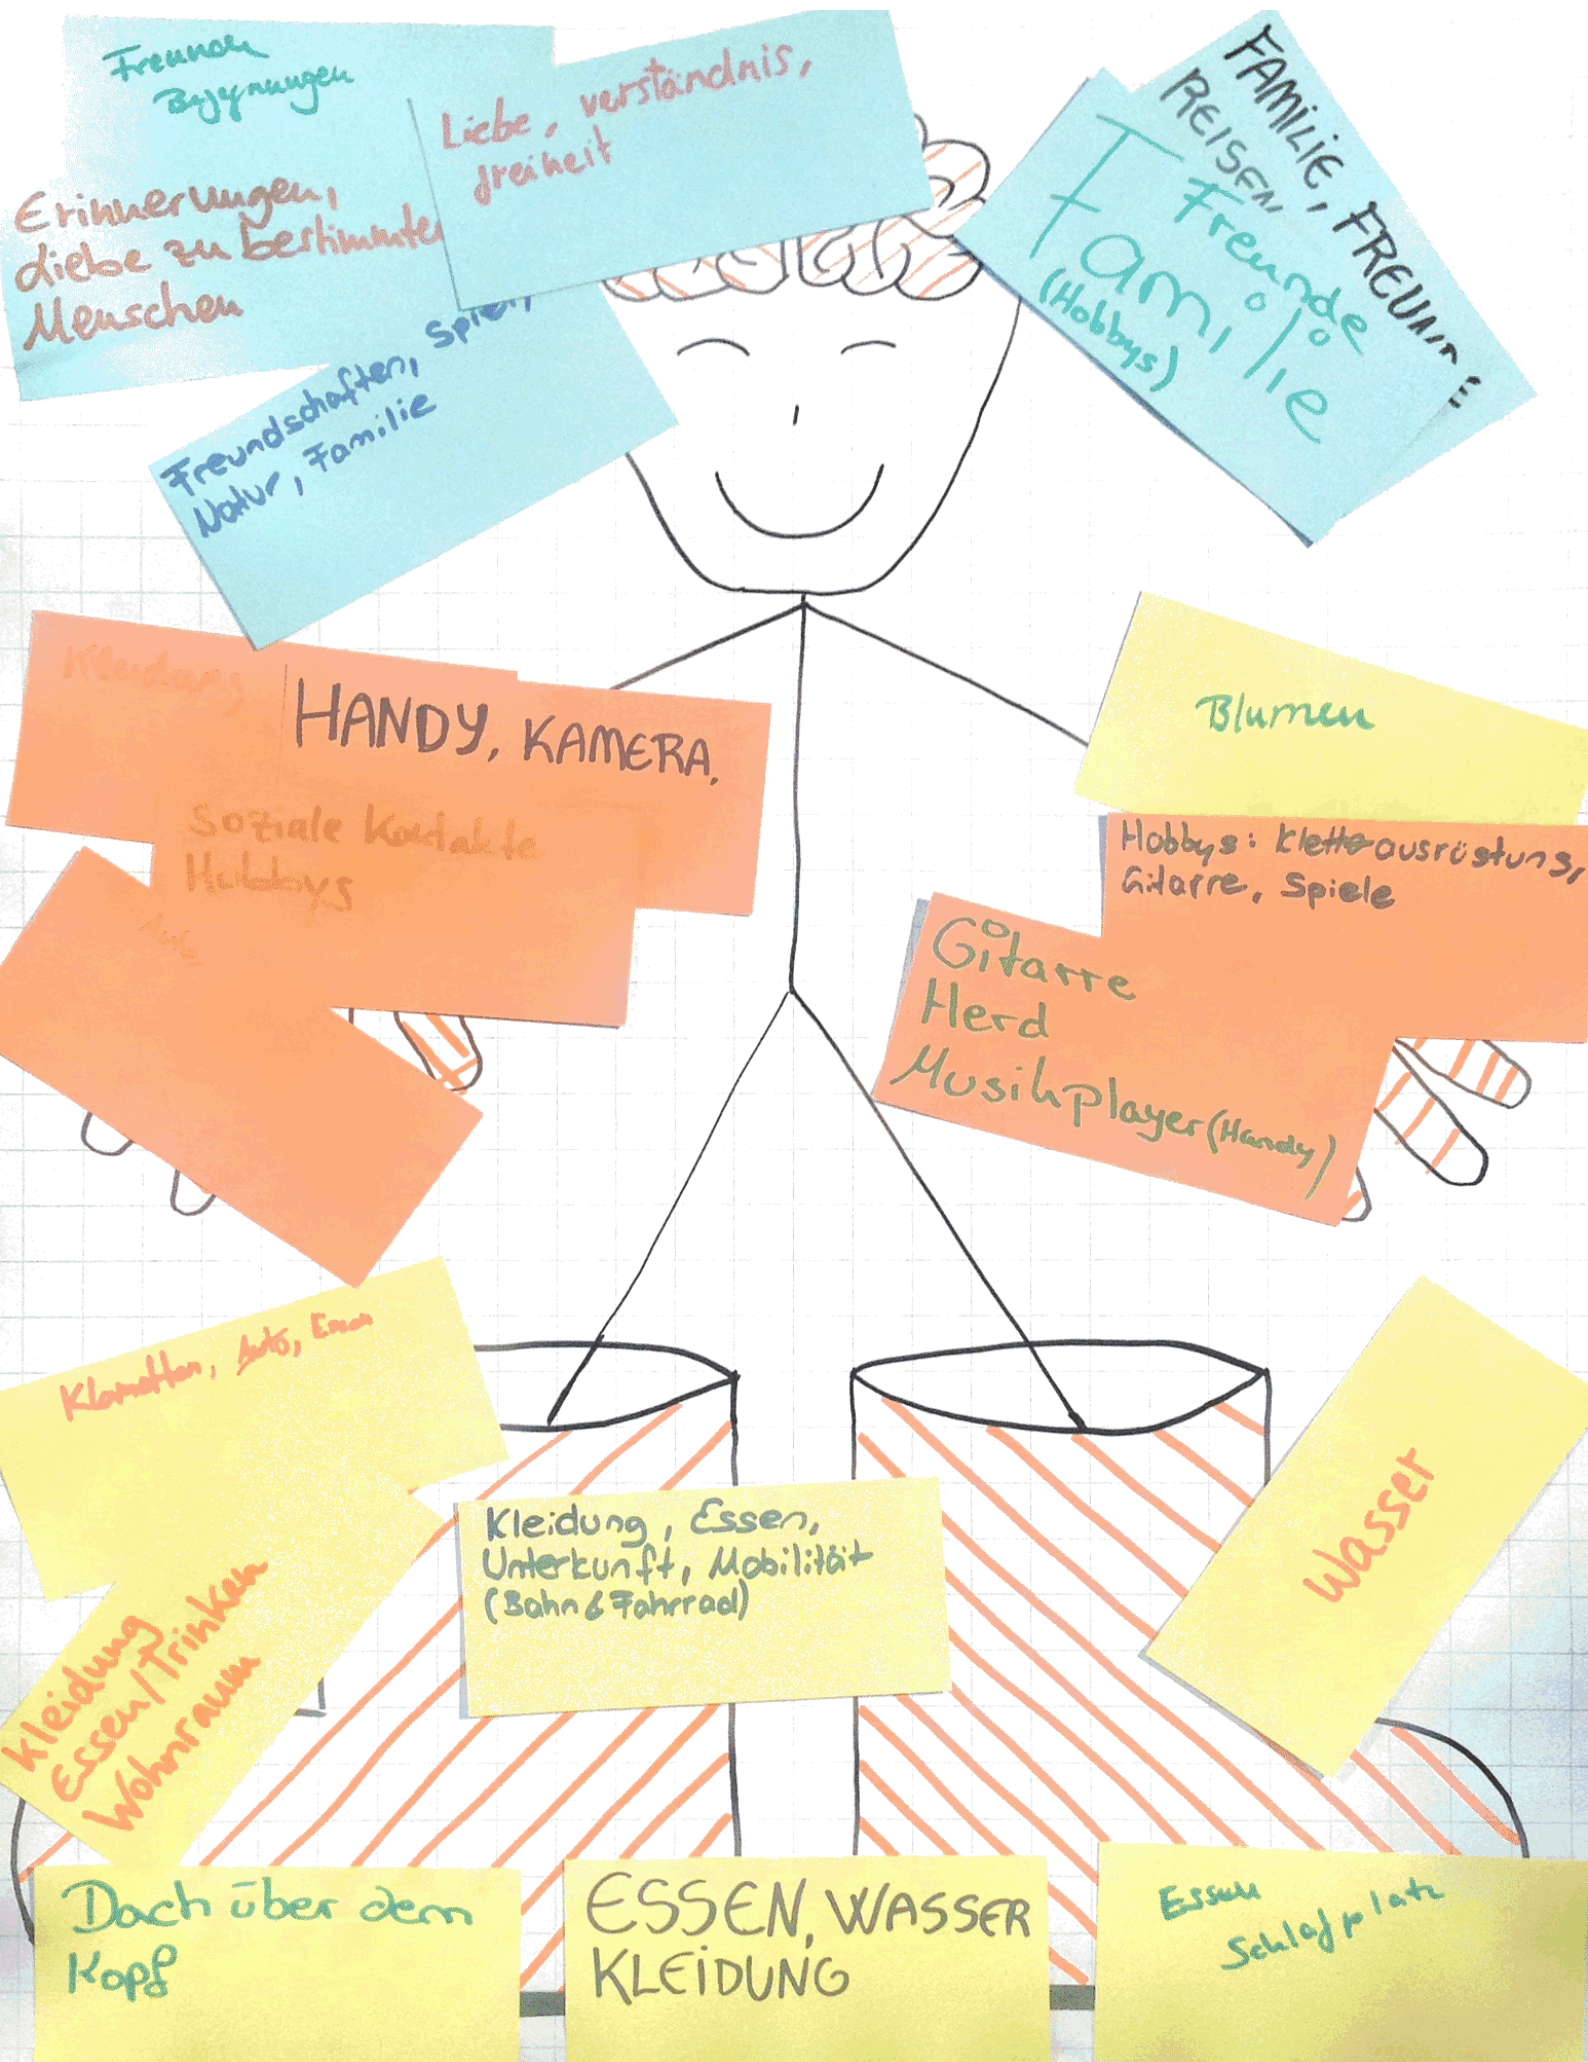 Freunde
Begegnungen
Erinnerungen,
Liebe zu bestimmten
Menschen
Liebe, verständnis,
freiheit
Freundschaften, Spielen,
Natur, Familie
FAMILIE, FREUNDE
REISEN
Freunde
Familie
(Hobbys)
Kleidung
HANDY, KAMERA,
Soziale Kontakte
Hobbys
Auto
Blumen
Hobbys: Kletterausrüstung,
Gitarre, Spiele
Gitarre
Herd
Musikplayer (Handy)
Klamotten, Auto, Essen
Kleidung
Essen/Trinken
Wohnraum
Kleidung, Essen,
Unterkunft, Mobilität
(Bahn & Fahrrad)
Wasser
Dach über dem
Kopf
ESSEN, WASSER
KLEIDUNG
Essen
Schlafplatz